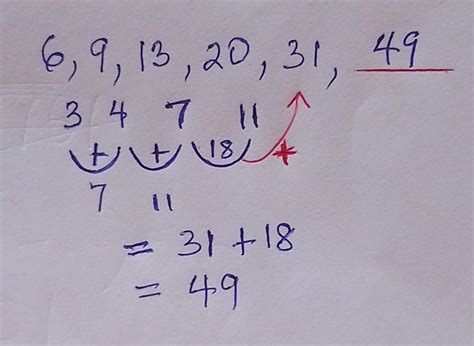 6, 9, 13, 20, 31, 49
3 4 7 11
+ + 18 +
7 11
= 31 + 18
= 49